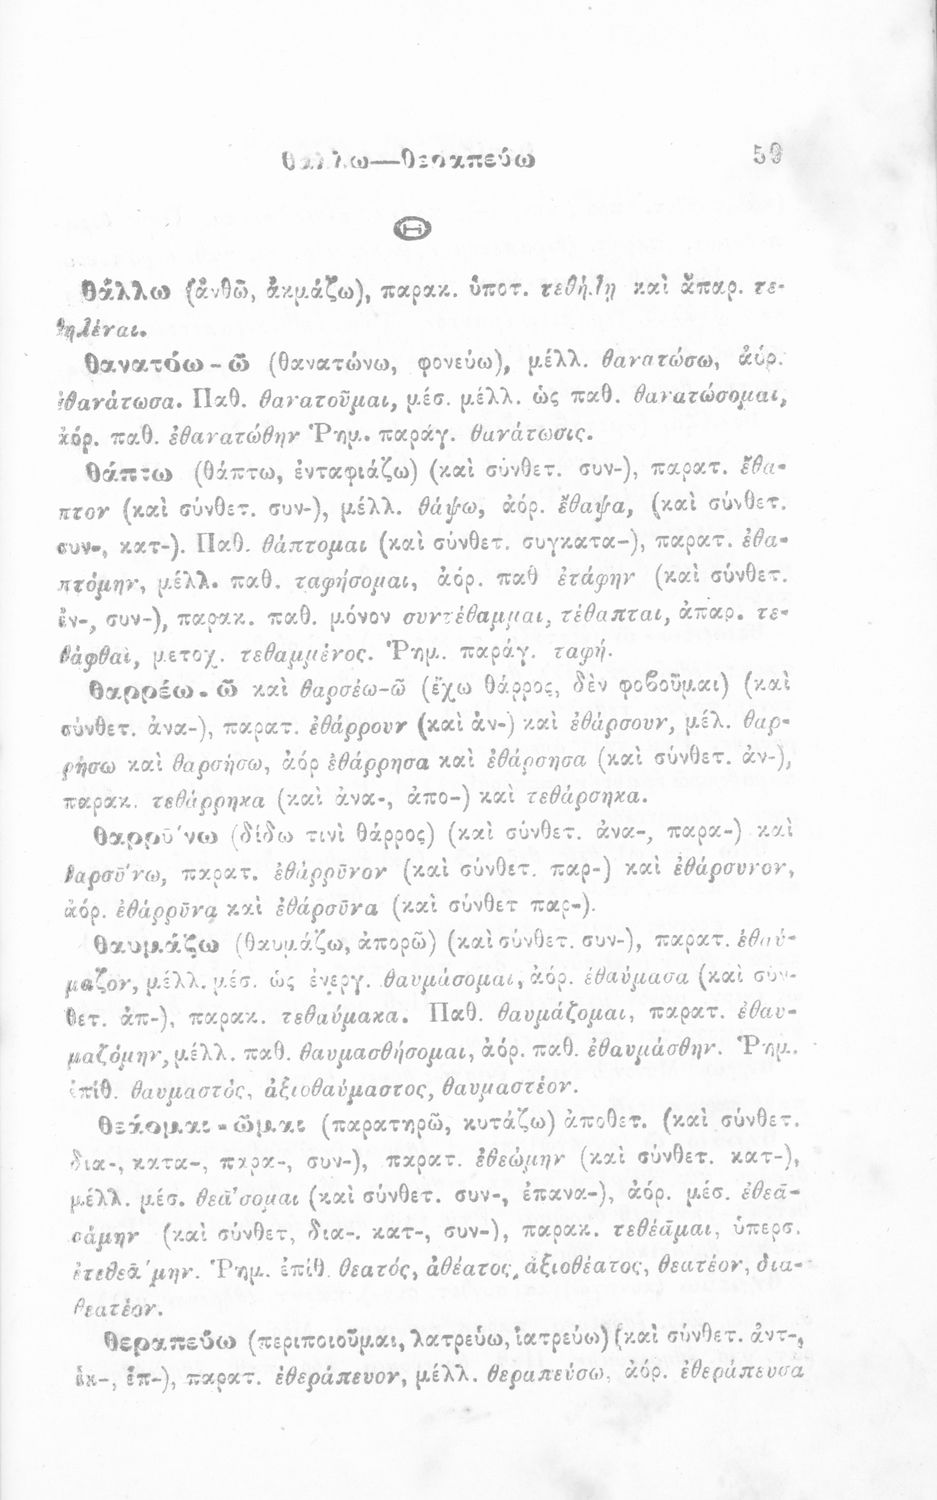 θάλλω—θεραπεύω 59
Θ
θάλλω (ἀνθῶ, ἀκμάζω), παρακ. ὑποτ. τεθήλῃ καὶ ἄπαρ. τε-
θηλέναι.
θανατόω-ῶ (θανατώνω, φονεύω), μέλλ. θανατώσω, ἀόρ.
ἐθανάτωσα. Παθ. θανατοῦμαι, μέσ. μέλλ. ὡς παθ. θανατώσομαι,
ἀόρ. παθ. ἐθανατώθην Ῥημ. παράγ. θανάτωσις.
θάπτω (θάπτω, ἐνταφιάζω) (καὶ σύνθετ. συν-), παρατ. ἔθα-
πτον (καὶ σύνθετ. συν-), μέλλ. θάψω, ἀόρ. ἔθαψα, (καὶ σύνθετ.
συν-, κατ-). Παθ. θάπτομαι (καὶ σύνθετ. συγκατα-), παρατ. ἐθα-
πτόμην, μέλλ. παθ. ταφήσομαι, ἀόρ. παθ ἐτάφην (καὶ σύνθετ.
ἐν-, συν-), παρακ. παθ. μόνον συντέθαμμαι, τέθαπται, ἀπαρ. τε-
θάφθαι, μετοχ. τεθαμμένος. Ῥημ. παράγ. ταφή.
θαρρέω-ῶ καὶ θαρσέω-ῶ (ἔχω θάρρος, δὲν φοβοῦμαι) (καὶ
σύνθετ. ἀνα-), παρατ. ἐθάρρουν (καὶ ἀν-) καὶ ἐθάρσουν, μέλ. θαρ-
ρήσω καὶ θαρσήσω, ἀόρ ἐθάρρησα καὶ ἐθάρσησα (καὶ σύνθετ. ἀν-),
παρακ. τεθάρρηκα (καὶ ἀνα-, ἀπο-) καὶ τεθάρσηκα.
θαρρῡ́νω (δίδω τινὶ θάρρος) (καὶ σύνθετ. ἀνα-, παρα-) καὶ
θαρσῡ́νω, παρατ. ἐθάρρῡνον (καὶ σύνθετ. παρ-) καὶ ἐθάρσυνον,
ἀόρ. ἐθάρρῡνα καὶ ἐθάρσῡνα (καὶ σύνθετ παρ-).
θαυμάζω (θαυμάζω, ἀπορῶ) (καὶ σύνθετ. συν-), παρατ. ἐθαύ-
μαζον, μέλλ. μέσ. ὡς ἐνεργ. θαυμάσομαι, ἀόρ. ἐθαύμασα (καὶ σύν-
θετ. ἀπ-), παρακ. τεθαύμακα. Παθ. θαυμάζομαι, παρατ. ἐθαυ-
μαζόμην, μέλλ. παθ. θαυμασθήσομαι, ἀόρ. παθ. ἐθαυμάσθην. Ῥημ.
ἐπίθ. θαυμαστός, ἀξιοθαύμαστος, θαυμαστέον.
θεάομαι-ῶμαι (παρατηρῶ, κυτάζω) ἀποθετ. (καὶ σύνθετ.
δια-, κατα-, παρα-, συν-), παρατ. ἐθεώμην (καὶ σύνθετ. κατ-),
μέλλ. μέσ. θεᾱ́σομαι (καὶ σύνθετ. συν-, ἐπανα-), ἀόρ. μέσ. ἐθεᾱ-
σάμην (καὶ σύνθετ, δια-. κατ-, συν-), παρακ. τεθέᾱμαι, ὑπερσ.
ἐτεθεᾱ́μην. Ῥημ. ἐπίθ. θεατός, ἀθέατος, ἀξιοθέατος, θεατέον, δια-
θεατέον.
θεραπεύω (περιποιοῦμαι, λατρεύω, ἰατρεύω) (καὶ σύνθετ. ἀντ-,
ἐκ-, ἐπ-), παρατ. ἐθεράπευον, μέλλ. θεραπεύσω, ἀόρ. ἐθεράπευσα